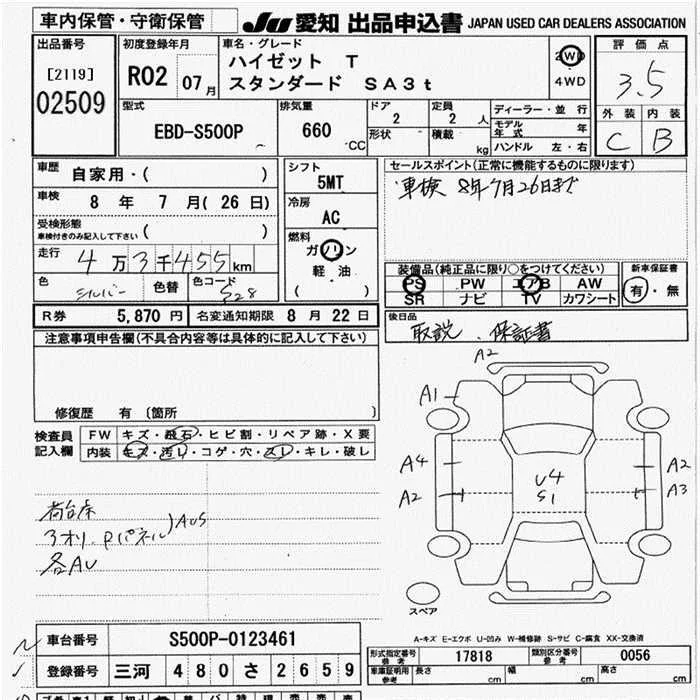 車内保管・守衛保管
JU 愛知 出品申込書 JAPAN USED CAR DEALERS ASSOCIATION
出品番号
[2119]
02509
初度登録年月
R02 07月
車名・グレード
ハイゼット T
スタンダード SA3t
2WD
4WD
評価点
3.5
外装 内装
C B
型式
EBD-S500P
排気量
660 CC
ドア
2
形状
定員
2 人
積載
kg
ディーラー・並行
モデル年式 年
ハンドル 左・右
車歴
自家用・( )
車検
8 年 7 月( 26 日)
受検形態
車検付きのみ記入して下さい ( )
走行
4万3千455km
色 シルバー 色替 色コード S28
シフト
5MT
冷房
AC
燃料
ガソリン
軽・油
( )
セールスポイント(正常に機能するものに限ります)
車検 8年7月26日まで
装備品(純正品に限り○をつけてください)
PS PW エアB AW
SR ナビ TV カワシート
新車保証書
有・無
R券 5,870円 名変通知期限 8月22日
後日品
取説、保証書
注意事項申告欄(不具合内容等は具体的に記入して下さい)
修復歴 有 〔箇所 〕
検査員
記入欄
FW キズ・飛石・ヒビ割・リペア跡・X要
内装 キズ・汚レ・コゲ・穴・スレ・キレ・破レ
荷台床
3オリ、Pパネル)AUS
各AU
A2
A1
A4
A2
U4
S1
A2
A3
スペア
A-キズ E-エクボ U-凹み W-補修跡 S-サビ C-腐食 XX-交換済
車台番号 S500P-0123461
登録番号 三河 480 さ 2659
形式指定番号
参考
17818
類別区分番号
参考
0056
車庫証明用
参考
長さ cm 幅 cm 高さ cm